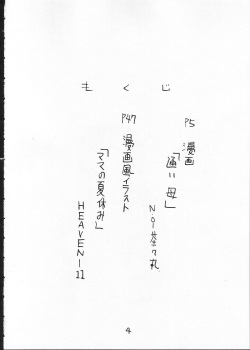 もくじ
P5 漫画
「隣=母」
P47 漫画風イラスト
「ママの夏休み」
HEAVEN-11
4